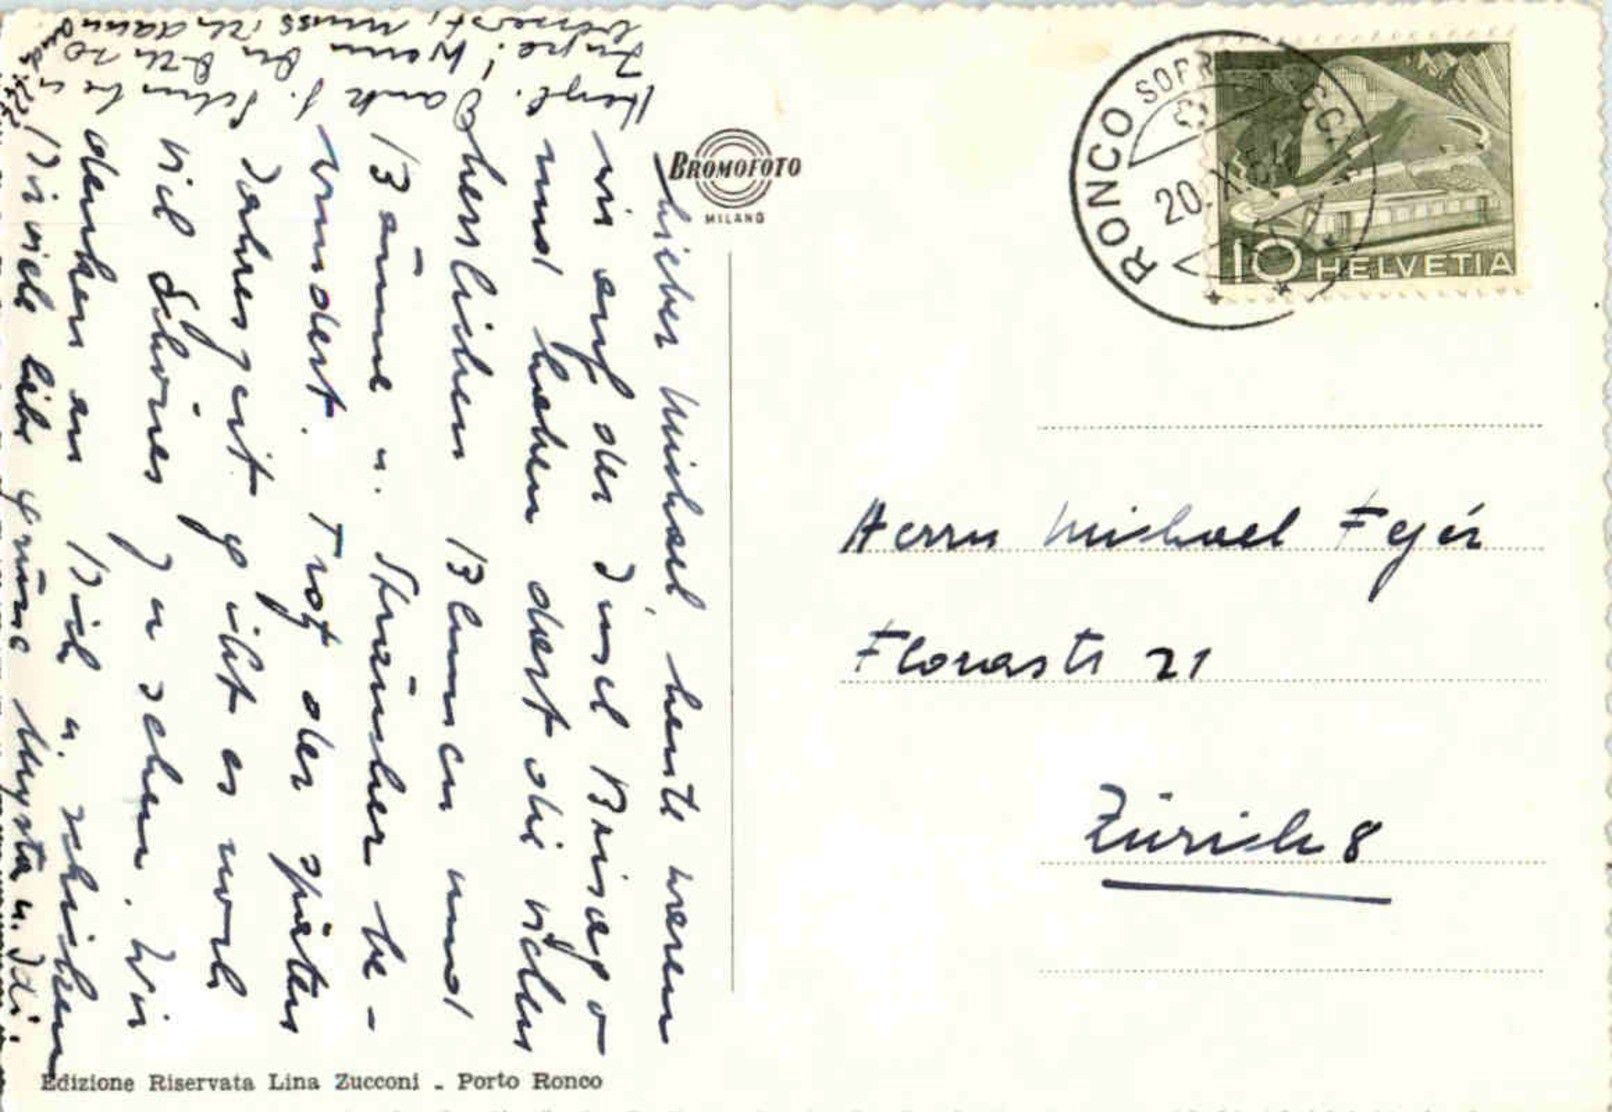 Lieber Michael, heute waren
wir auf der Insel Brisago
und haben dort die vielen
herrlichen Blumen und
Bäume u. Sträucher be-
wundert. Trotz der späten
Jahreszeit gibt es noch
viel Schönes zu sehen. Wir
denken an Dich u. schicken
Dir viele liebe Grüsse
Herzl. Dank f.
Wenn Du
muss ich dann
BROMOFOTO
MILANO
RONCO
20. X
10 HELVETIA
Herrn Michael Fejér
Florastr 21
Zürich 8
Edizione Riservata Lina Zucconi - Porto Ronco